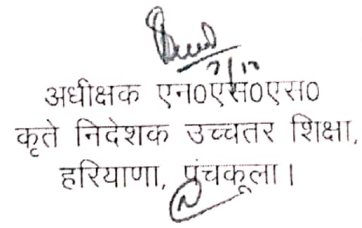 7/12
अधीक्षक एन0एस0एस0
कृते निदेशक उच्चतर शिक्षा,
हरियाणा, पंचकूला।